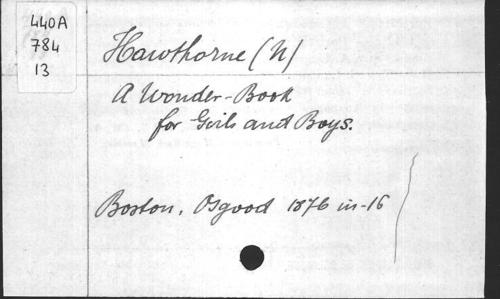 440A
784
13
Hawthorne (N)
A Wonder-Book
for Girls and Boys.
Boston, Osgood 1876 in-16